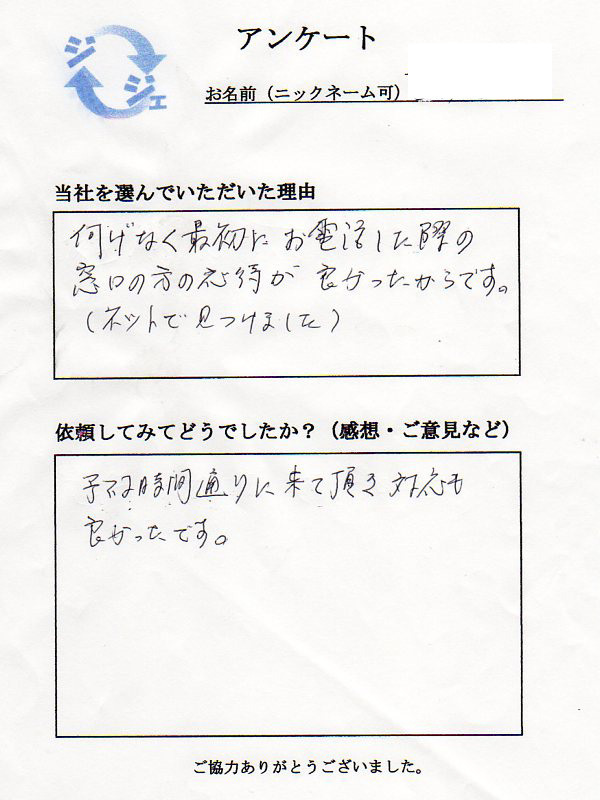 ジ
ジェ
アンケート
お名前（ニックネーム可）
当社を選んでいただいた理由
何げなく最初にお電話した際の
窓口の方の応待が良かったからです。
（ネットで見つけました）
依頼してみてどうでしたか？（感想・ご意見など）
時間通りに来て頂き対応も
良かったです。
ご協力ありがとうございました。